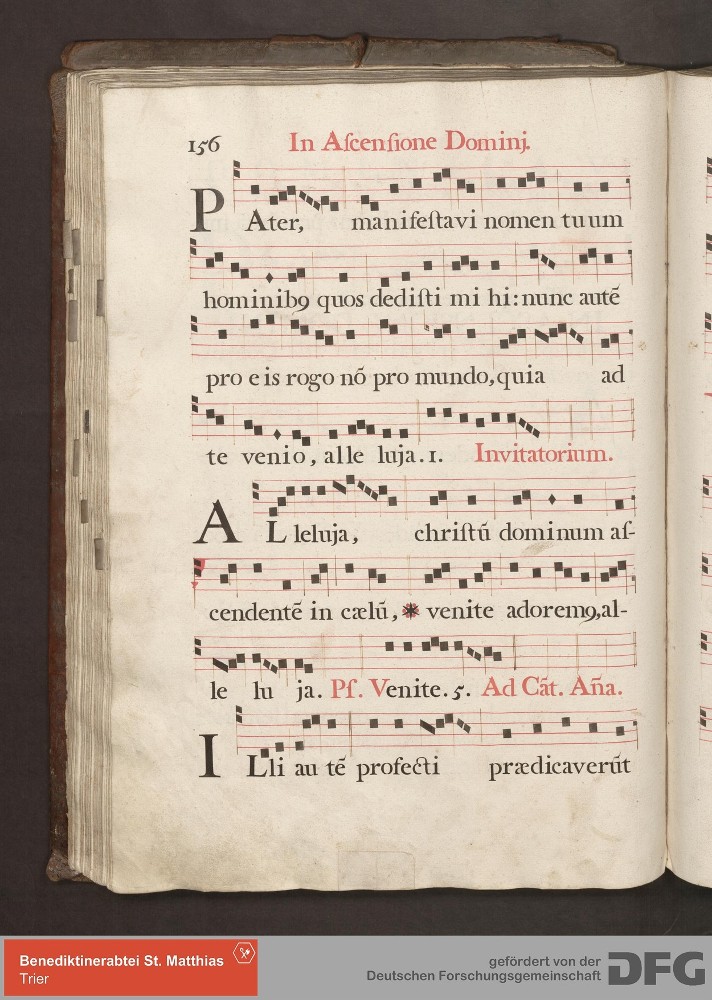 156 In Aſcenſione Dominj.
PAter, manifeſtavi nomen tuum
hominibꝰ quos dediſti mi hi: nunc autē
pro e is rogo nō pro mundo, quia ad
te venio, alle luja. 1. Invitatorium.
AL leluja, chriſtū dominum aſ-
cendentē in cælū, * venite adoremꝰ, al-
le lu ja. Pſ. Venite. 5. Ad Cāt. Aña.
ILli au tē profecti prædicaverūt
Benediktinerabtei St. Matthias
Trier
gefördert von der
Deutschen Forschungsgemeinschaft
DFG